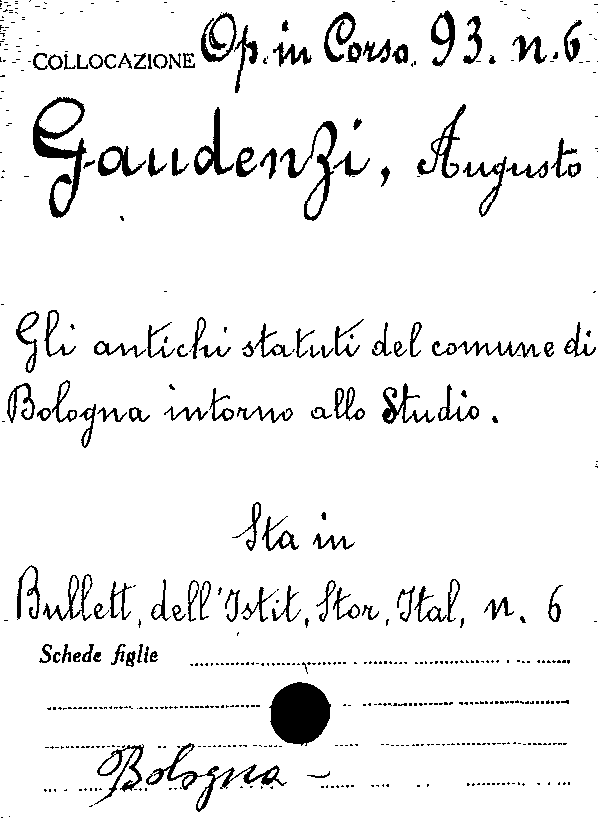 COLLOCAZIONE Op. in Corso. 93. n. 6
Gaudenzi, Augusto
Gli antichi statuti del comune di
Bologna intorno allo Studio.
Sta in
Bullett. dell'Istit. Stor. Ital. n. 6
Schede figlie
Bologna -